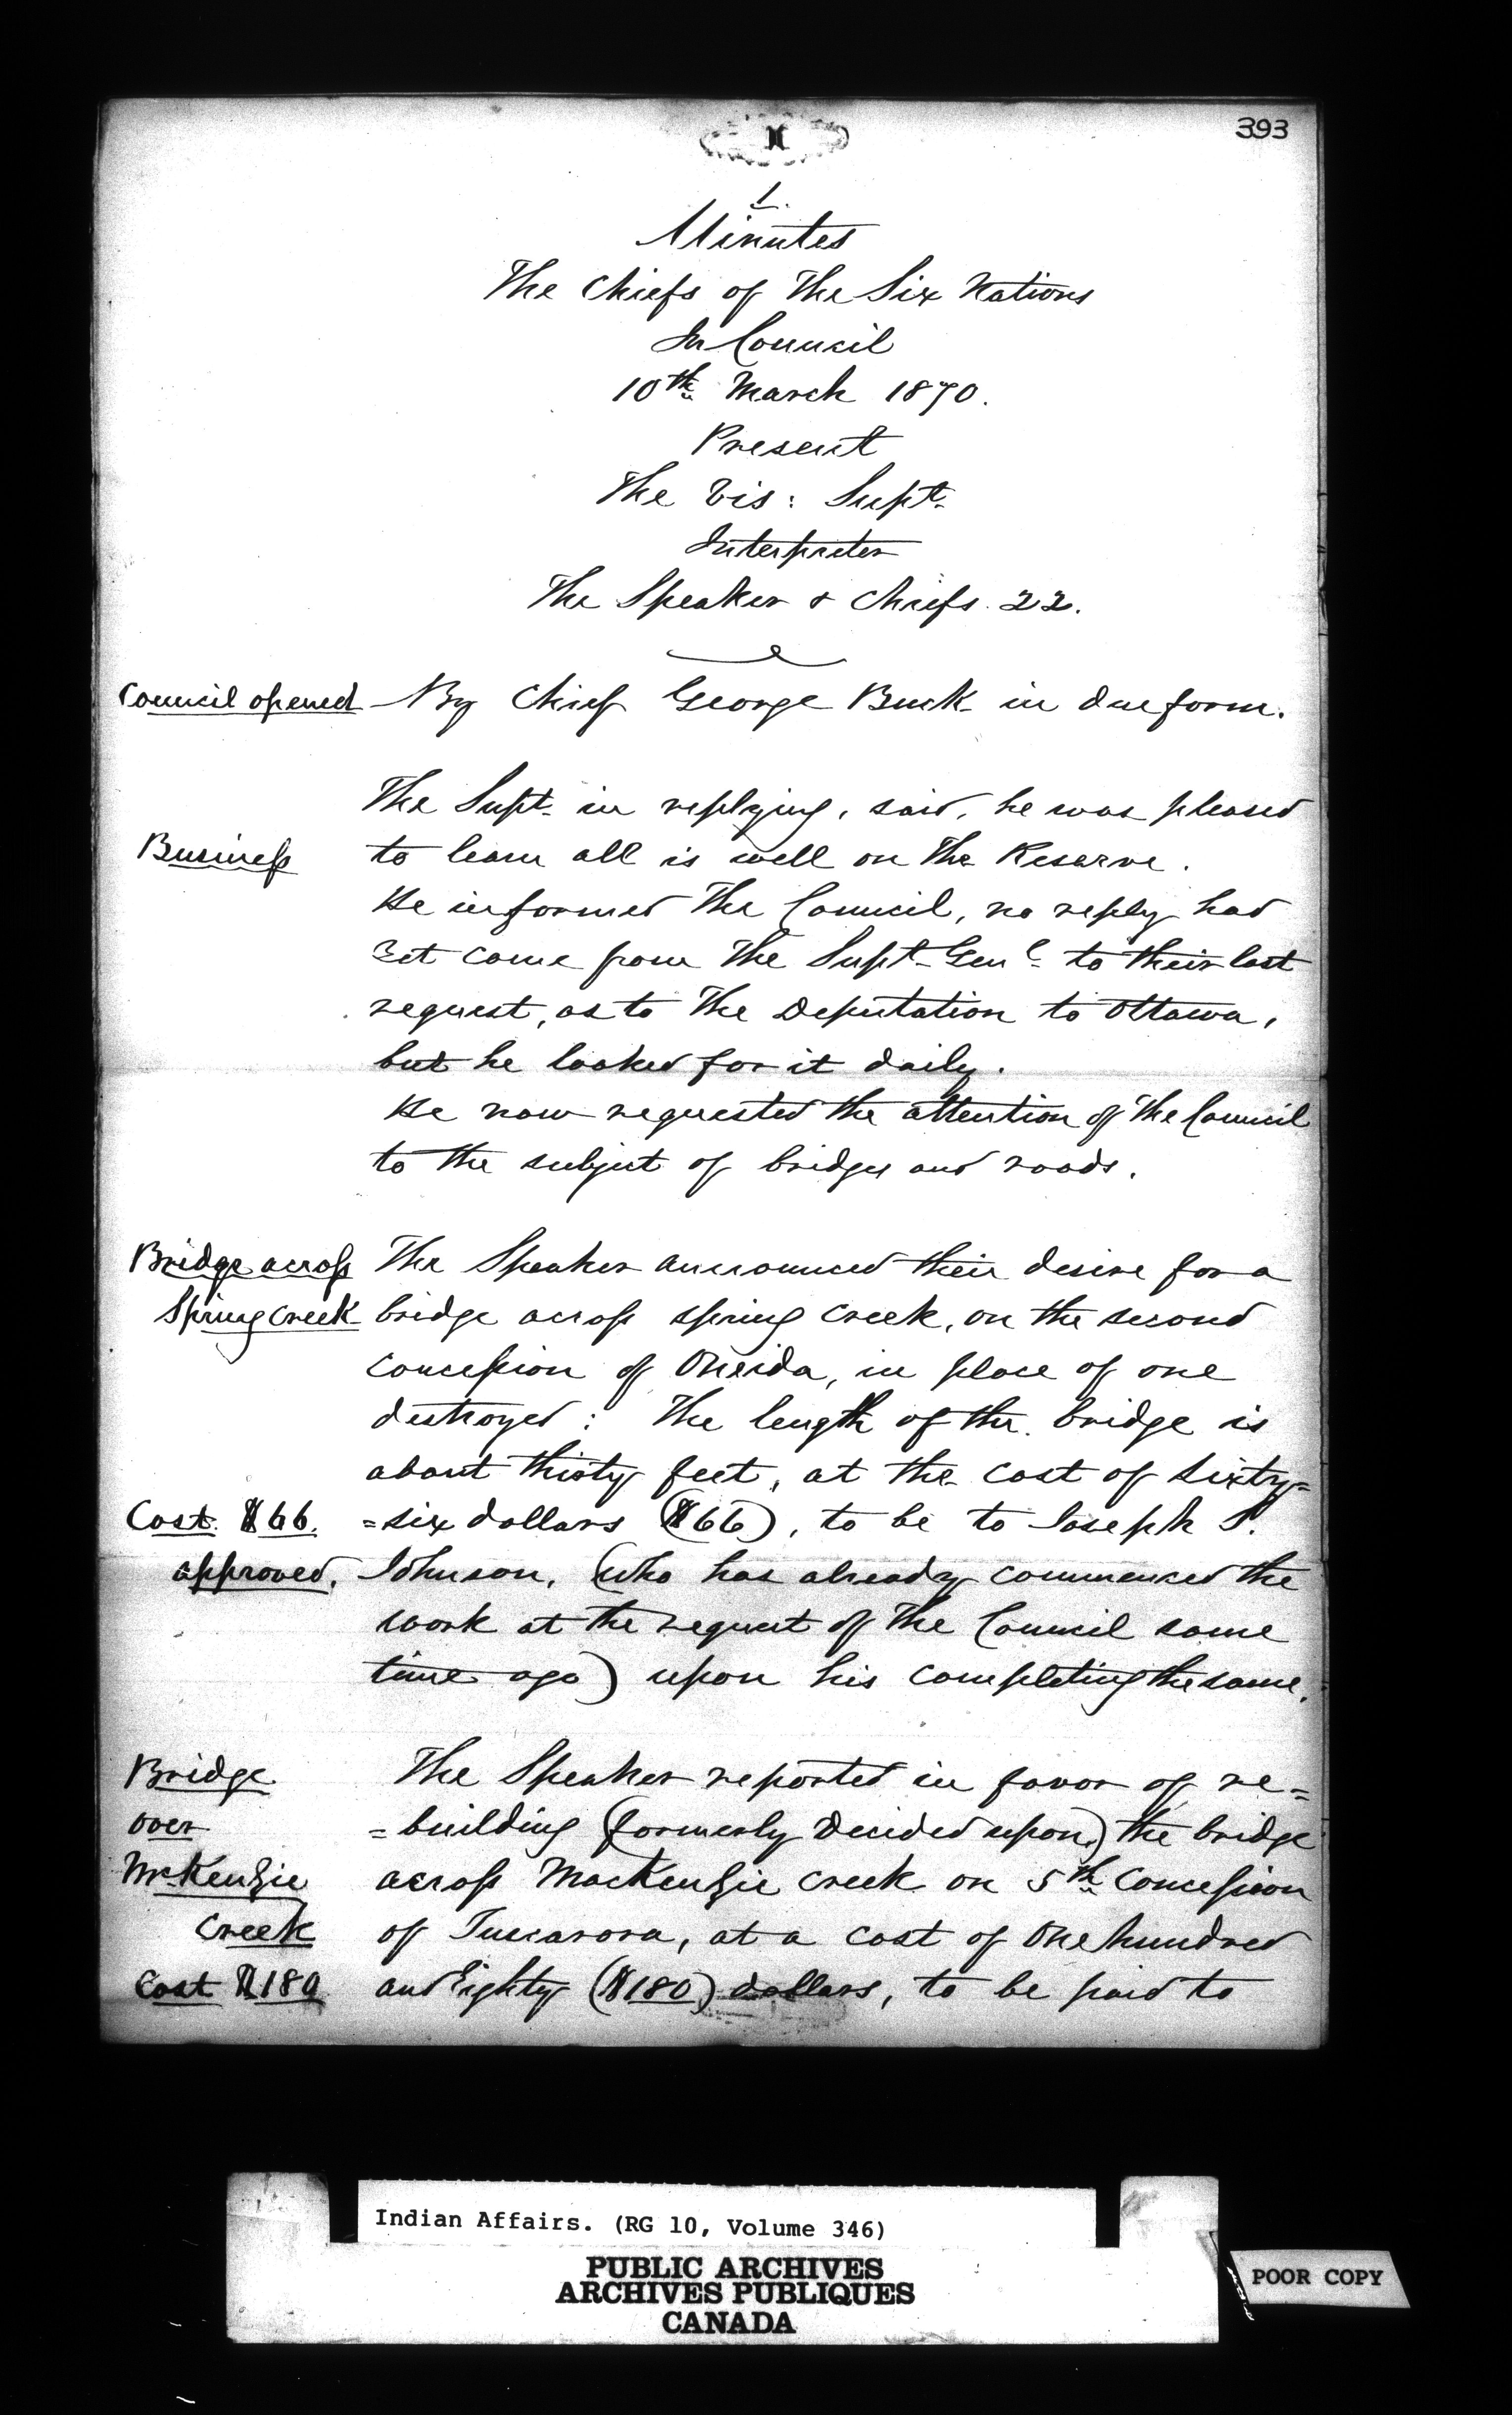 393
1.
Minutes
The Chiefs of The Six Nations
In Council
10th March 1870.
Present
The Vis: Supt.
Interpreter
The Speaker & Chiefs. 22.
Council opened By Chief George Buck in due form.
The Supt. in replying, said, he was pleased
Business to learn all is well on the Reserve.
He informed the Council, no reply had
yet come from the Supt. Genl. to their last
request, as to the Deputation to Ottawa,
but he looked for it daily.
He now requested the attention of the Council
to the subject of bridges and roads.
Bridge across The Speaker announced their desire for a
Spring Creek bridge across spring Creek, on the second
Concession of Oneida, in place of one
destroyed: The length of the bridge is
about thirty feet, at the cost of sixty=
Cost. $66. =six dollars ($66), to be to Joseph S.
approved. Johnson, (who has already commenced the
work at the request of the Council some
time ago) upon his completing the same.
Bridge The Speaker reported in favor of re=
over =building (formerly decided upon,) the bridge
McKenzie across MacKenzie Creek on 5th Concession
Creek of Tuscarora, at a cost of One hundred
Cost $180 and Eighty ($180) dollars, to be paid to
Indian Affairs. (RG 10, Volume 346)
PUBLIC ARCHIVES
ARCHIVES PUBLIQUES
CANADA
POOR COPY